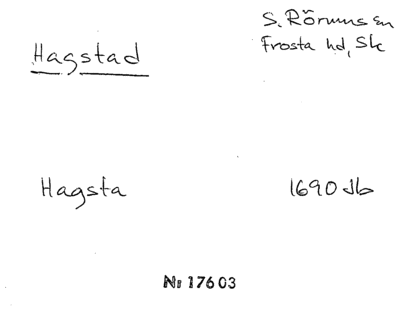 Hagstad
S. Rörums sn
Frosta hd, Sk
Hagsta
1690 Jb
Nr 17603